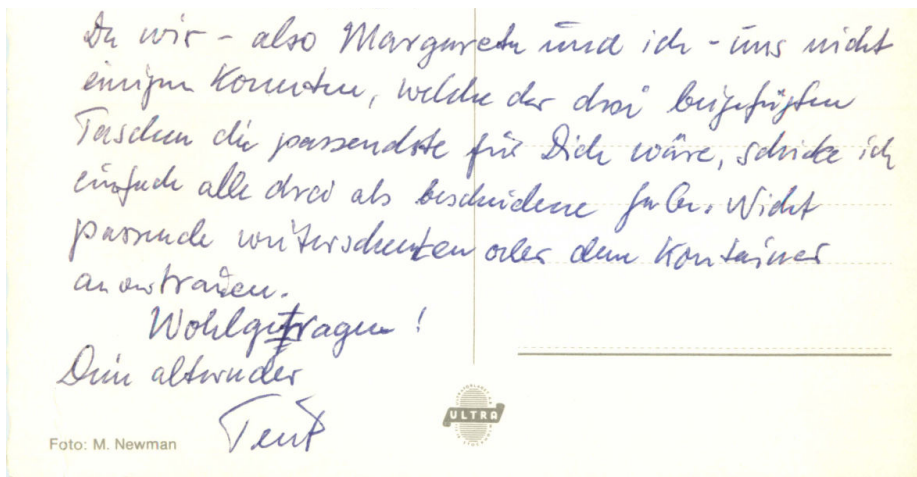 Da wir - also Margarete und ich - uns nicht
einigen konnten, welche der drei beigefügten
Taschen die passendste für Dich wäre, schicke ich
einfach alle drei als bescheidene Gabe. Nicht
passende weiterschenken oder dem Kontainer
anvertrauen.
Wohlgetragen!
Dein alternder
Foto: M. Newman
ULTRA